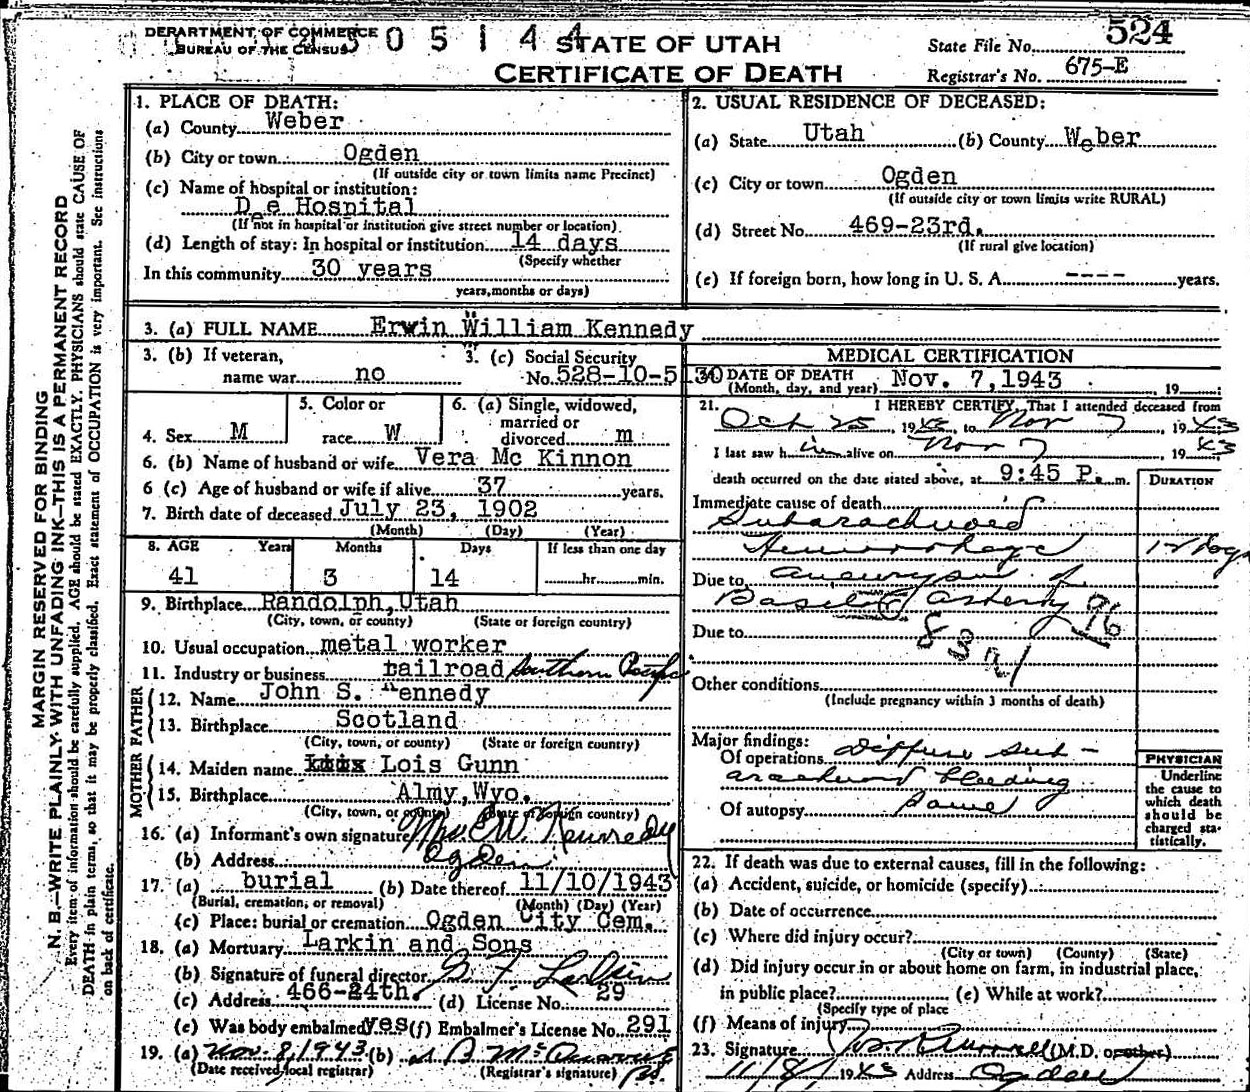 DEPARTMENT OF COMMERCE
BUREAU OF THE CENSUS
5 0 5 1 4 4
STATE OF UTAH
CERTIFICATE OF DEATH
State File No. 524
Registrar's No. 675-E
MARGIN RESERVED FOR BINDING
N. B.—WRITE PLAINLY WITH UNFADING INK—THIS IS A PERMANENT RECORD
Every item of information should be carefully supplied. AGE should be stated EXACTLY. PHYSICIANS should state CAUSE OF
DEATH in plain terms, so that it may be properly classified. Exact statement of OCCUPATION is very important. See instructions
on back of certificate.
1. PLACE OF DEATH:
(a) County Weber
(b) City or town Ogden
(If outside city or town limits name Precinct)
(c) Name of hospital or institution:
Dee Hospital
(If not in hospital or institution give street number or location)
(d) Length of stay: In hospital or institution 14 days
(Specify whether
In this community 30 years
years, months or days)
2. USUAL RESIDENCE OF DECEASED:
(a) State Utah (b) County Weber
(c) City or town Ogden
(If outside city or town limits write RURAL)
(d) Street No. 469-23rd.
(If rural give location)
(e) If foreign born, how long in U. S. A. ---- years.
3. (a) FULL NAME Erwin William Kennedy
3. (b) If veteran, name war no
3. (c) Social Security No. 528-10-5130
4. Sex M
5. Color or race W
6. (a) Single, widowed, married or divorced m
6. (b) Name of husband or wife Vera Mc Kinnon
6 (c) Age of husband or wife if alive 37 years.
7. Birth date of deceased July 23, 1902
(Month) (Day) (Year)
8. AGE Years Months Days If less than one day
41 3 14 hr. min.
9. Birthplace Randolph, Utah
(City, town, or county) (State or foreign country)
10. Usual occupation metal worker
11. Industry or business railroad Southern Pacific
FATHER
12. Name John S. Kennedy
13. Birthplace Scotland
(City, town, or county) (State or foreign country)
MOTHER
14. Maiden name Lois Gunn
15. Birthplace Almy, Wyo.
(City, town, or county) (State or foreign country)
16. (a) Informant's own signature Mrs. E.W. Kennedy
(b) Address Ogden
17. (a) burial (b) Date thereof 11/10/1943
(Burial, cremation, or removal) (Month) (Day) (Year)
(c) Place: burial or cremation Ogden City Cem.
18. (a) Mortuary Larkin and Sons
(b) Signature of funeral director G F Larkin
(c) Address 466-24th. (d) License No. 29
(e) Was body embalmed yes (f) Embalmer's License No. 291
19. (a) Nov. 8, 1943 (b)
(Date received local registrar) (Registrar's signature)
MEDICAL CERTIFICATION
DATE OF DEATH Nov. 7, 1943 , 19
(Month, day, and year)
21. I HEREBY CERTIFY, That I attended deceased from
Oct 25, 1943, to Nov 7, 1943
I last saw him alive on Nov 7, 1943
death occurred on the date stated above, at 9:45 P. m.
DURATION
Immediate cause of death
Subarachnoid
Hemorrhage 12 days
Due to aneurysm of
Basilar Artery 96
Due to
83a1
Other conditions
(Include pregnancy within 3 months of death)
Major findings:
Of operations Diffuse sub-
arachnoid bleeding
Of autopsy Same
PHYSICIAN
Underline
the cause to
which death
should be
charged sta-
tistically.
22. If death was due to external causes, fill in the following:
(a) Accident, suicide, or homicide (specify)
(b) Date of occurrence
(c) Where did injury occur?
(City or town) (County) (State)
(d) Did injury occur in or about home on farm, in industrial place,
in public place? (e) While at work?
(Specify type of place
(f) Means of injury
23. Signature (M.D. or other)
11/8/1943 Address Ogden